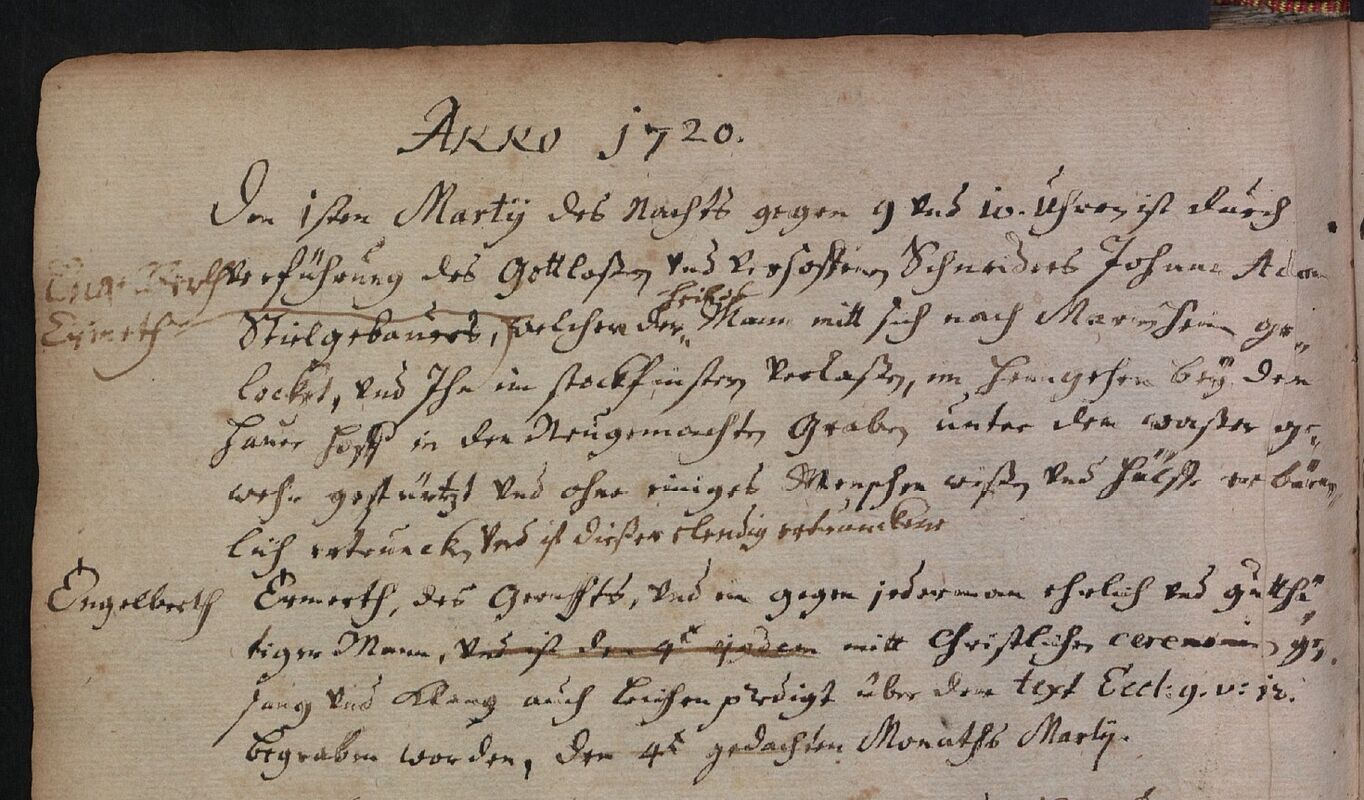 Anno 1720.
Den 1sten Martij des Nachts gegen 9 und 10. Uhren ist durch
verführung des Gottlosen und versoffenen Schneiders Johann Adam
Ermerth
Stielgebauers, welcher den Mann mitt sich nach Marnheim ge„
locket, und Ihn im stockfinstern verlaßen, im heimgehen bey dem
hauer hoff in den Neugemachten Graben unter dem waßer ge„
wehr gestürtzt und ohne einiges Menschen wißen und hülffe erbärm„
lich ertruncken und ist dießer elendig ertrunckene
Engelberth Ermerth, des Gerichts, und ein gegen jederman ehrlich und gutthä„
tiger Mann, und ist den 4t ejusdem mitt Christlichen ceremonien ge„
sang und Klang auch leichen predigt über den text Eccl: 9. v: 12.
begraben worden, den 4t gedachten Monaths Martij.